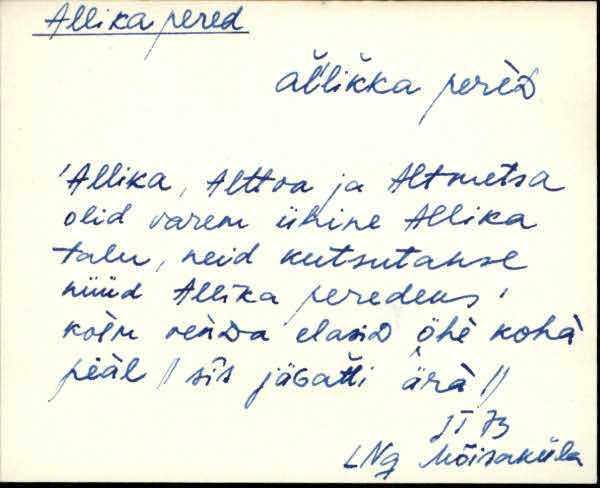 Allika pered
äĺlikka perèᴅ
'Allika, Alttoa ja Altmetsa
olid varem ühine Allika
talu, neid kutsutakse
nüüd Allika peredeks'
kolm venᴅa elasiᴅ ǜhe kohà
pèäl // sìs jäGatti ärà //
II 73
LNg Mõisaküla